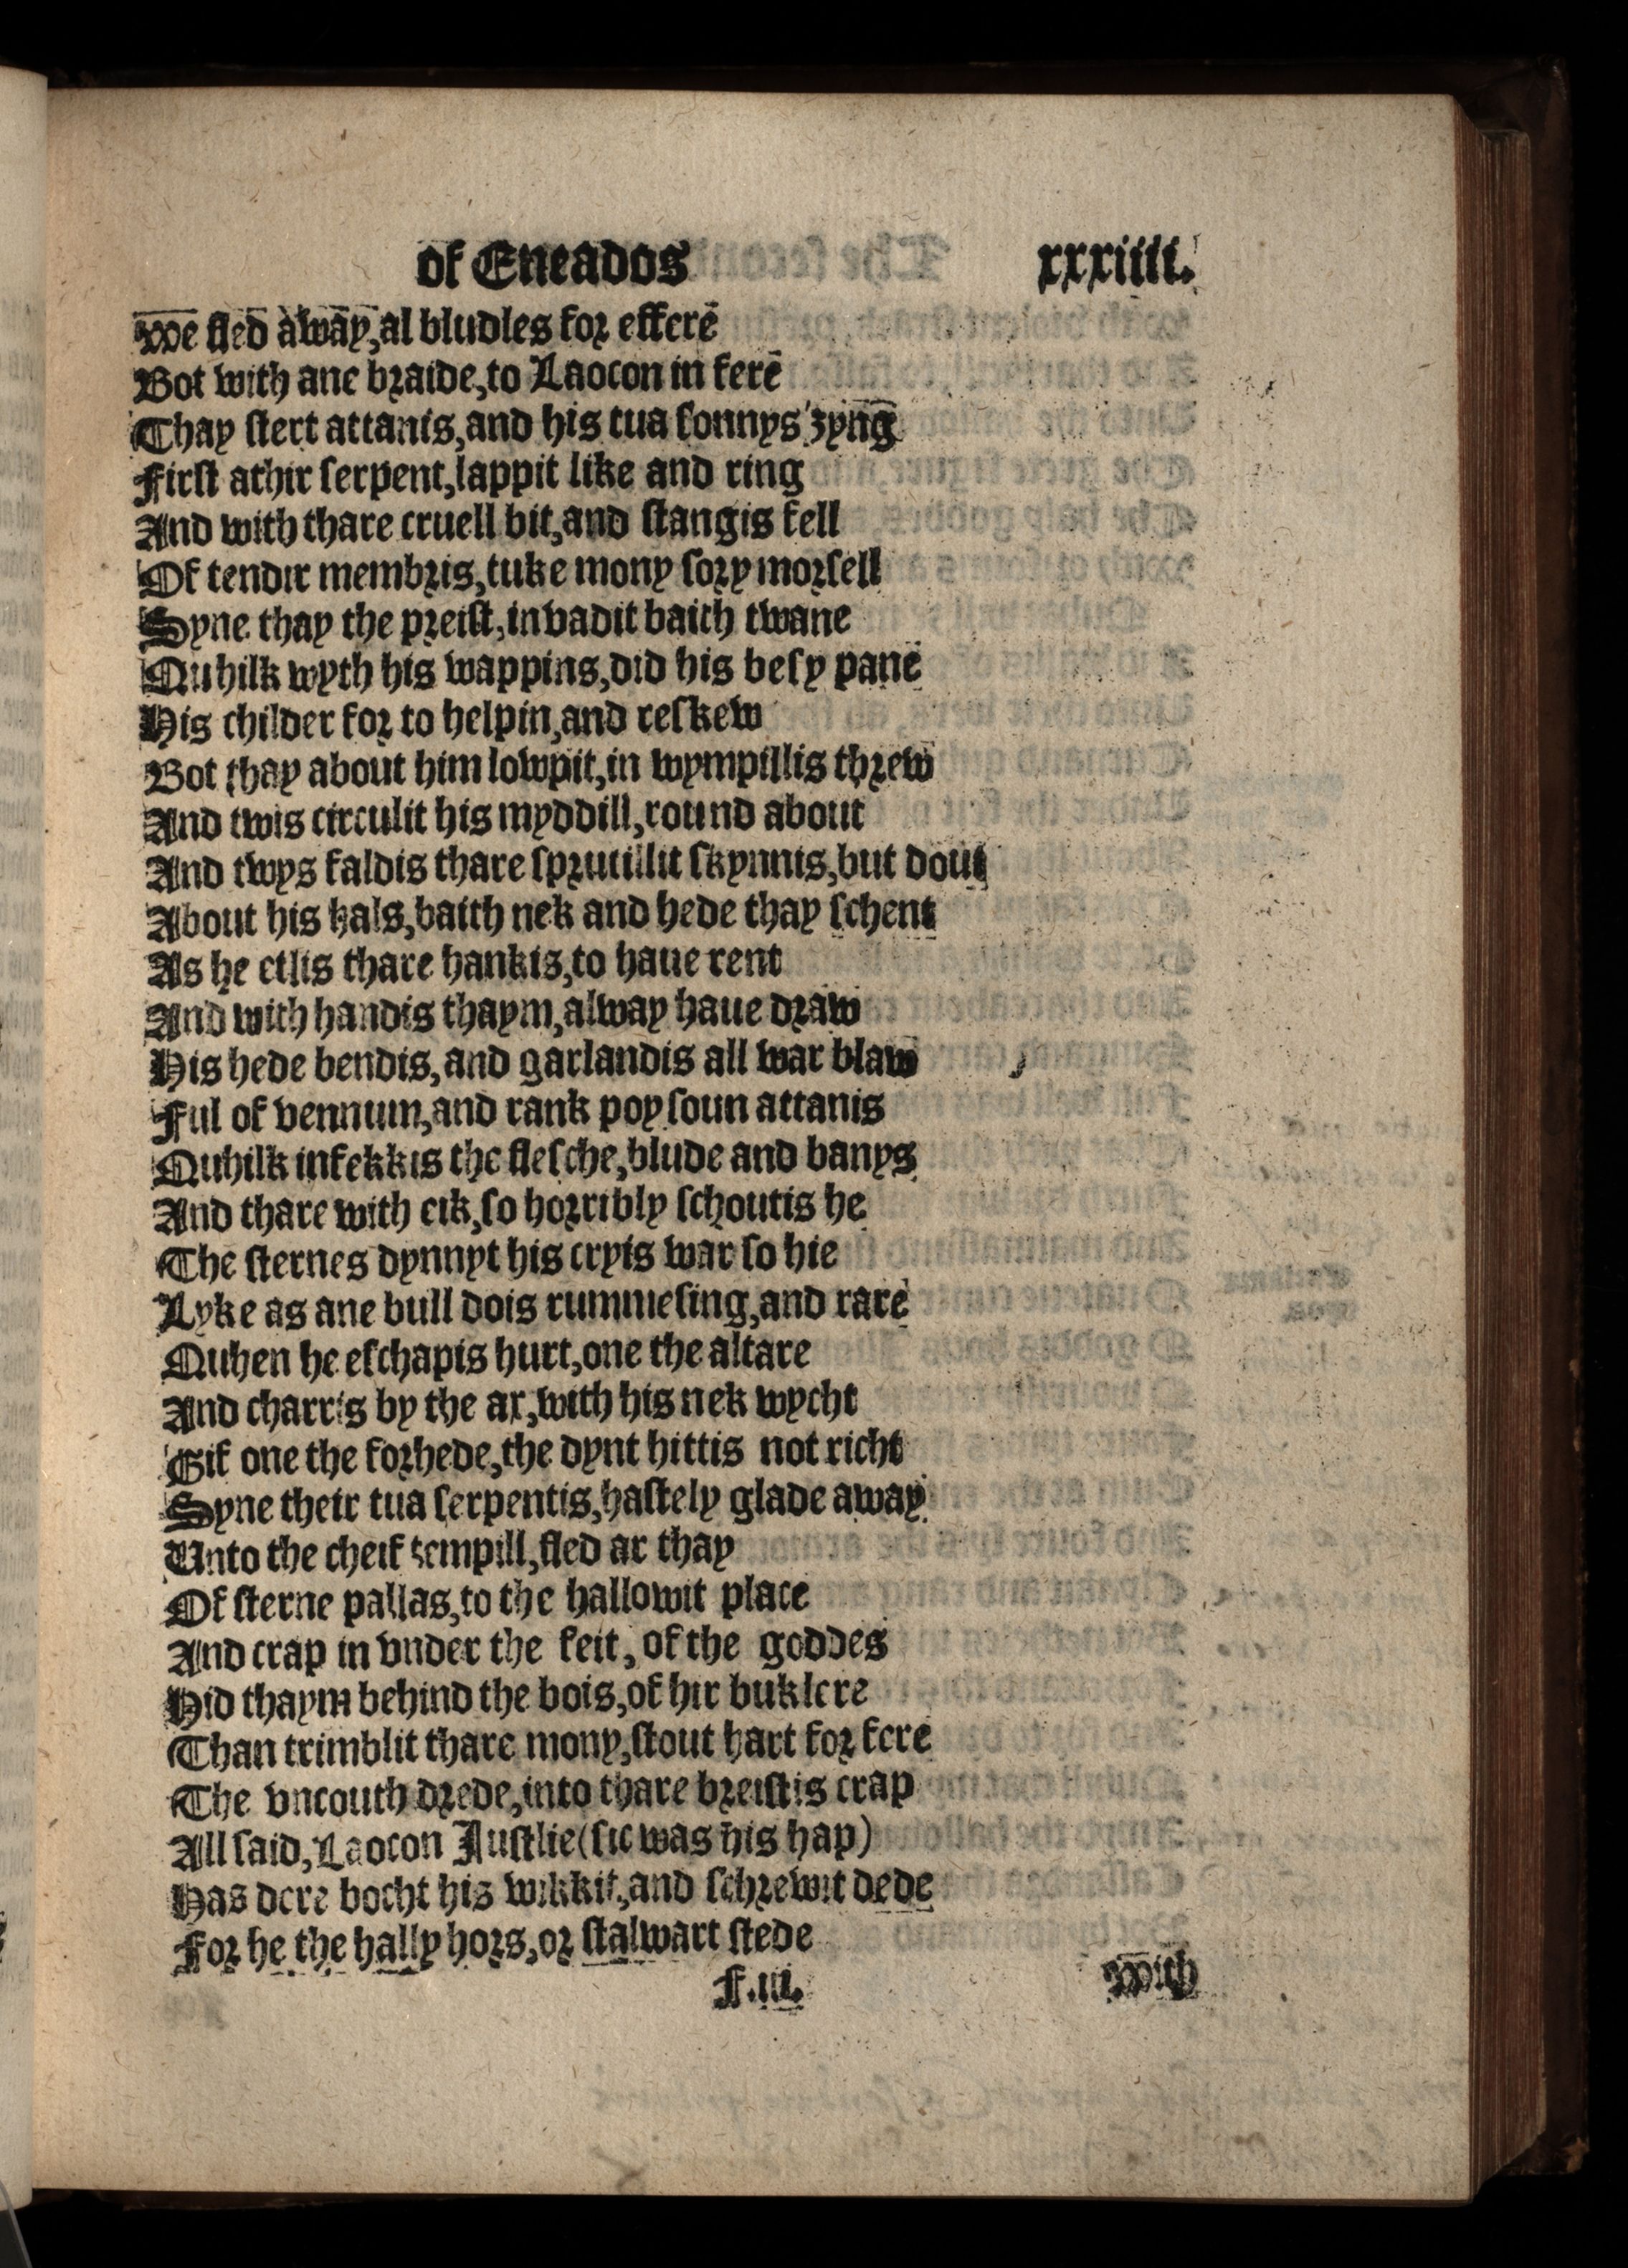 of Eneados xxxiiii.
We fled away, al bludles for effere
Bot with ane braide, to Laocon in fere
Thay ſtert attanis, and his tua ſonnys ȝyng
Firſt athir ſerpent, lappit like and ring
And with thare cruell bit, and ſtangis fell
Of tendir membris, tuke mony ſory morſell
Syne thay the preiſt, invadit baith twane
Quhilk wyth his wappins, did his beſy pane
His childer for to helpin, and reſkew
Bot thay about him lowpit, in wympillis threw
And twis circulit his myddill, round about
And twys faldis thare ſprutillit ſkynnis, but dout
About his hals, baith nek and hede thay ſchent
As he etlis thare hankis, to haue rent
And with handis thaym, alway haue draw
His hede bendis, and garlandis all war blaw
Ful of vennum, and rank poyſoun attanis
Quhilk infekkis the fleſche, blude and banys
And thare with eik, ſo horribly ſchoutis he
The ſternes dynnyt his cryis war ſo hie
Lyke as ane bull dois rummeſing, and rare
Quhen he eſchapis hurt, one the altare
And charris by the ax, with his nek wycht
Gif one the forhede, the dynt hittis not richt
Syne their tua ſerpentis, haſtely glade away
Unto the cheif tempill, fled ar thay
Of ſterne pallas, to the hallowit place
And crap in vnder the feit, of the goddes
Hid thaym behind the bois, of hir buklere
Than trimblit thare mony, ſtout hart for fere
The vncouth drede, into thare breiſtis crap
All ſaid, Laocon Iuſtlie (ſic was his hap)
Has dere bocht his wikkit, and ſchrewit dede
For he the hally hors, or ſtalwart ſtede
F.iii. With